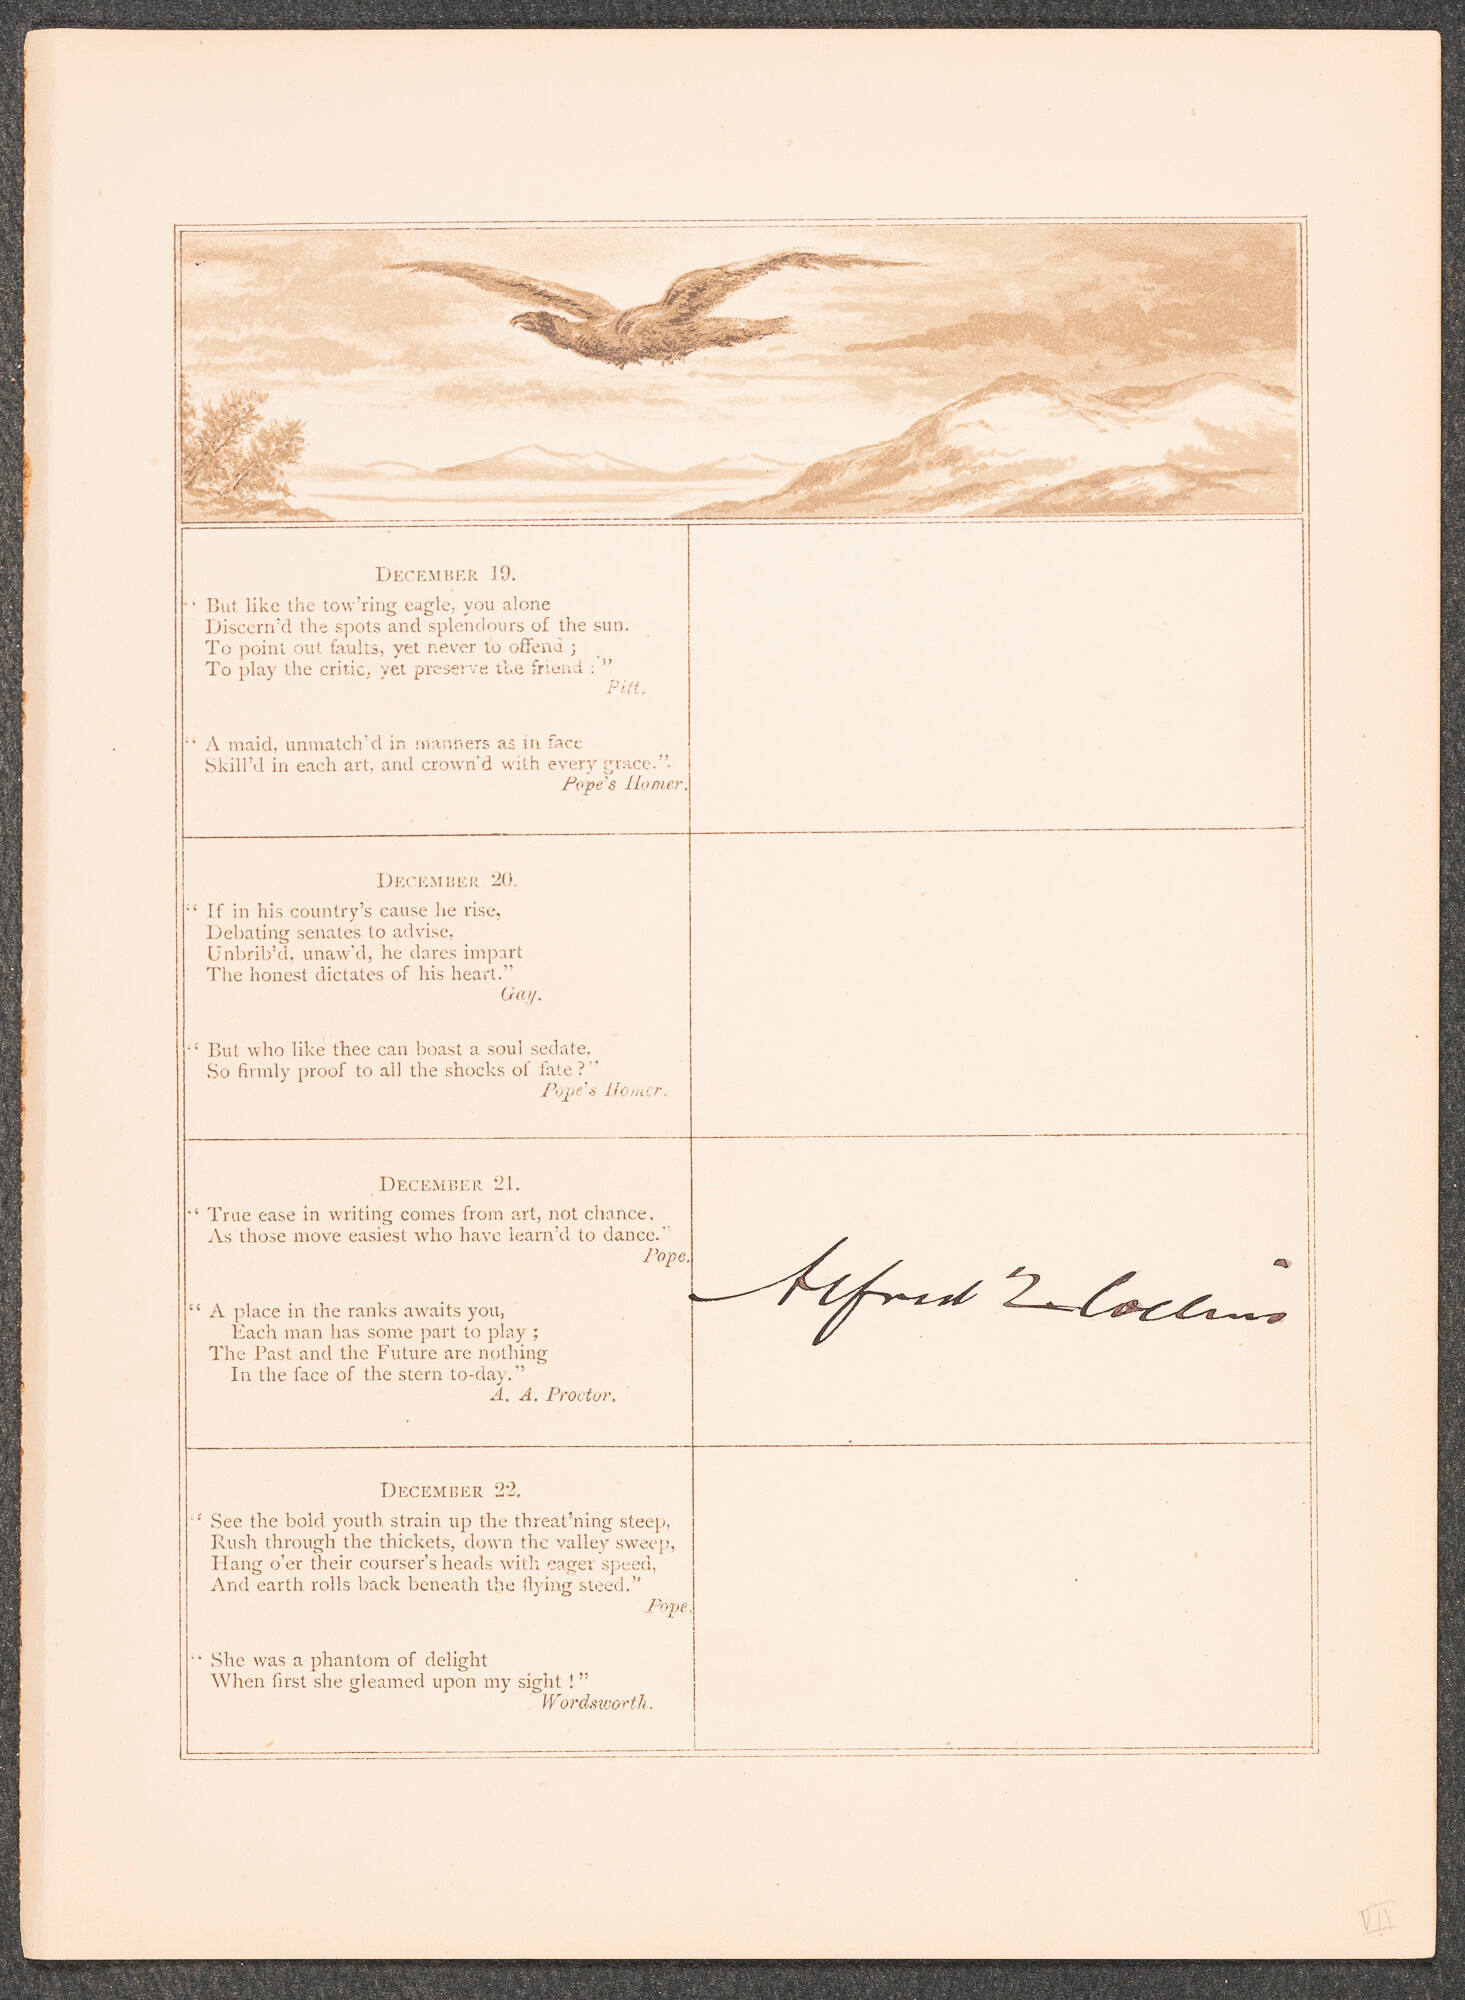 DECEMBER 19.
“ But like the tow'ring eagle, you alone
Discern'd the spots and splendours of the sun.
To point out faults, yet never to offend ;
To play the critic, yet preserve the friend :”
Pitt.
“ A maid, unmatch'd in manners as in face
Skill'd in each art, and crown'd with every grace.”
Pope's Homer.
DECEMBER 20.
“ If in his country's cause he rise,
Debating senates to advise,
Unbrib'd, unaw'd, he dares impart
The honest dictates of his heart.”
Gay.
“ But who like thee can boast a soul sedate,
So firmly proof to all the shocks of fate ?”
Pope's Homer.
DECEMBER 21.
“ True ease in writing comes from art, not chance,
As those move easiest who have learn'd to dance.”
Pope.
“ A place in the ranks awaits you,
Each man has some part to play ;
The Past and the Future are nothing
In the face of the stern to-day.”
A. A. Proctor.
Alfred Q Collins
DECEMBER 22.
“ See the bold youth strain up the threat'ning steep,
Rush through the thickets, down the valley sweep,
Hang o'er their courser's heads with eager speed,
And earth rolls back beneath the flying steed.”
Pope.
“ She was a phantom of delight
When first she gleamed upon my sight !”
Wordsworth.
VII